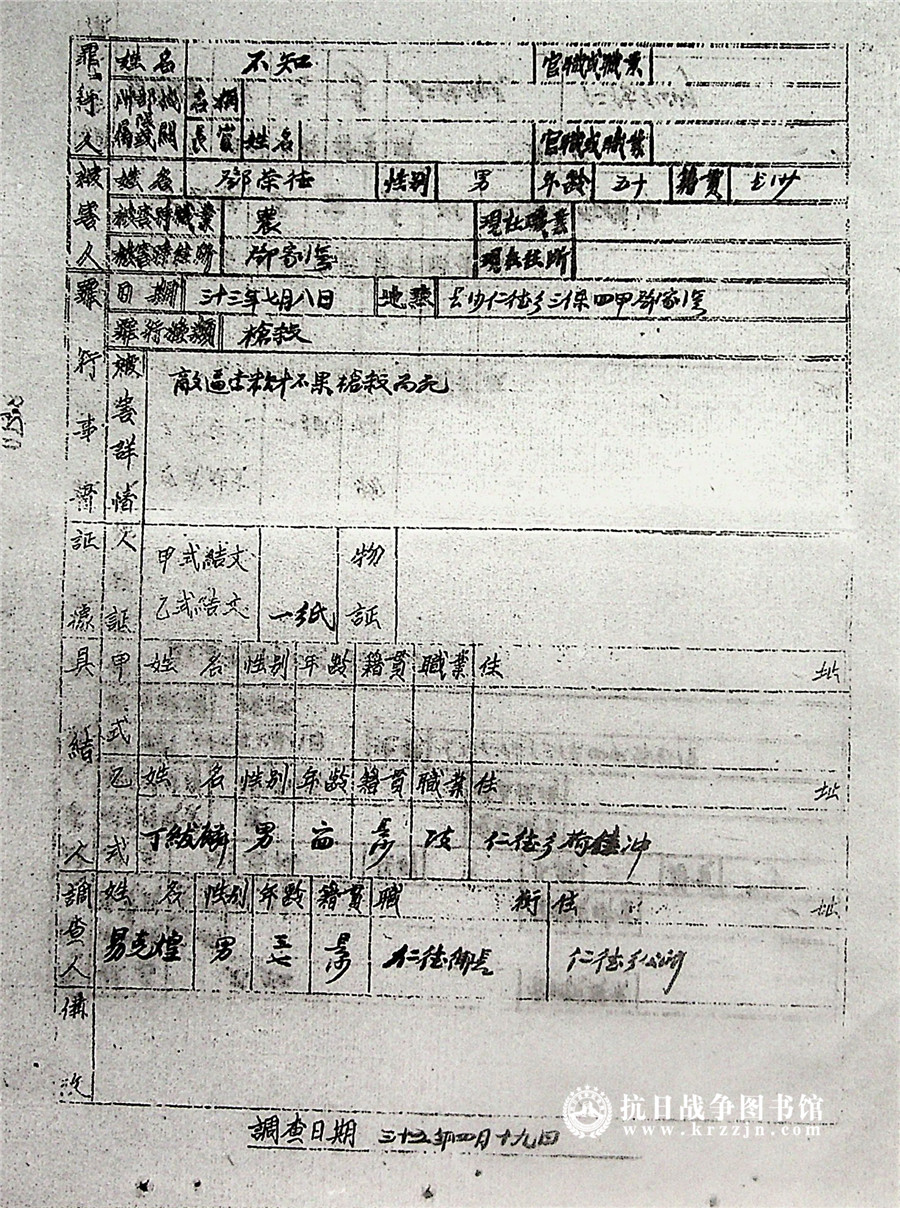 罪行人 姓名 不知 官職或職業
所屬部隊或機關 名稱
長官 姓名 官職或職業
被害人 姓名 鄧荣社 性别 男 年龄 五十 籍貫 长沙
被害時職業 農 現在職業
被害時住所 鄧家湾 現在住所
罪行事實 日期 三十三年七月八日 地點 长沙仁德乡三保四甲鄧家湾
罪行種類 槍殺
被害詳情 敵逼去 不果槍殺而死
証據 人証 甲式結文 物証
乙式結文 一紙
具結人 甲式 姓名 性别 年龄 籍貫 職業 住址
乙式 姓名 性别 年龄 籍貫 職業 住址
丁 麟 男 长沙 仁德乡荷 冲
調查人 姓名 性别 年龄 籍貫 職銜 住址
易克煌 男 五七 长沙 仁德鄉長 仁德乡公所
備攷
調查日期 三十五年四月十九日
抗日战争图书馆
www.krzzjn.com